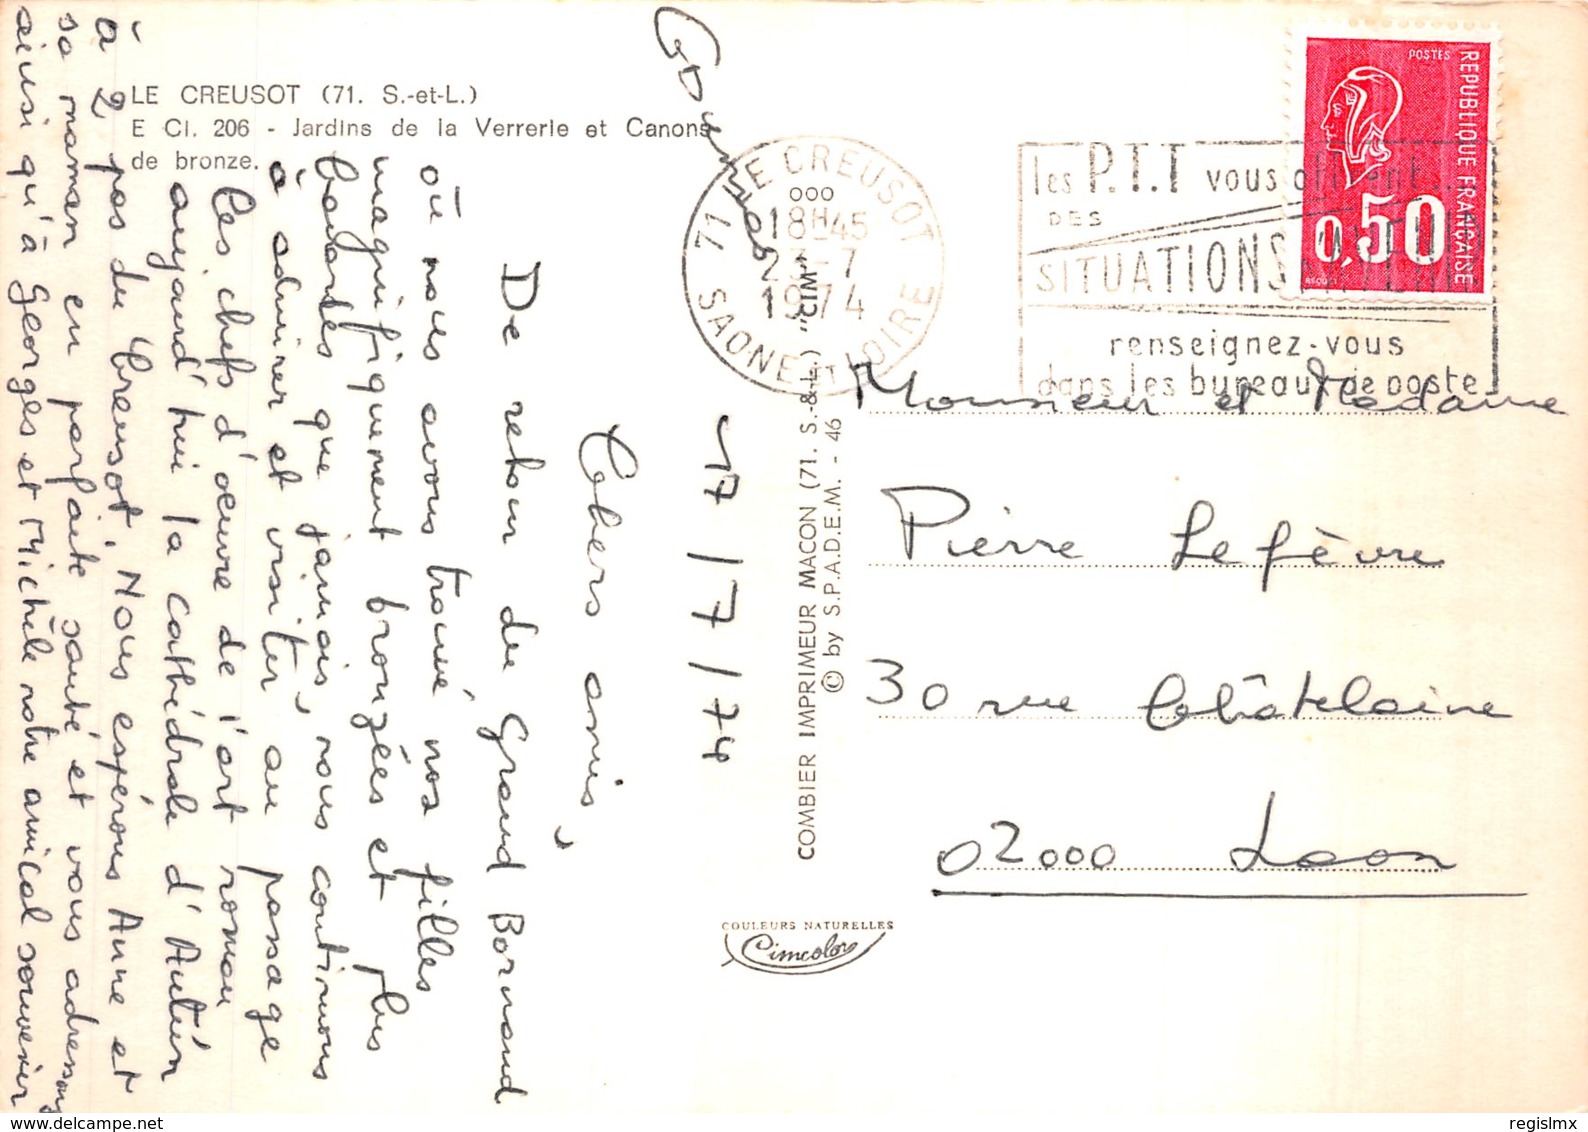 LE CREUSOT (71. S.-et-L.)
E CI. 206 - Jardins de la Verrerie et Canons
de bronze.
17/7/74
Chers amis,
De retour du Grand Bornand
où nous avons trouvé nos filles
magnifiquement bronzées et plus
bavardes que jamais, nous continuons
à admirer et visiter au passage
les chefs d'œuvre de l'art roman
aujourd'hui la cathédrale d'Autun
à 2 pas du Creusot. Nous espérons Anne et
sa maman en parfaite santé et vous adressons
ainsi qu'à Georges et Michèle notre amical souvenir
COMBIER IMPRIMEUR MACON (71. S.-&-L.) "CIM"
© by S.P.A.D.E.M. - 46
COULEURS NATURELLES
Cimcolor
71 LE CREUSOT
18H45
23-7
1974
SAONE ET LOIRE
les P.T.T vous offrent...
DES
SITUATIONS D'AVENIR
renseignez-vous
dans les bureaux de poste
POSTES
REPUBLIQUE FRANÇAISE
0,50
Monsieur et Madame
Pierre Lefèvre
30 rue Châtelaine
02000 Laon
© regislmx